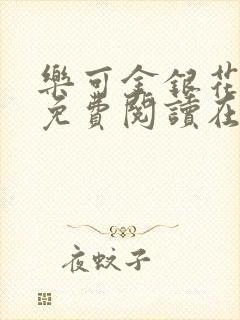 樂可金銀花
免費閱讀在
夜蚊子